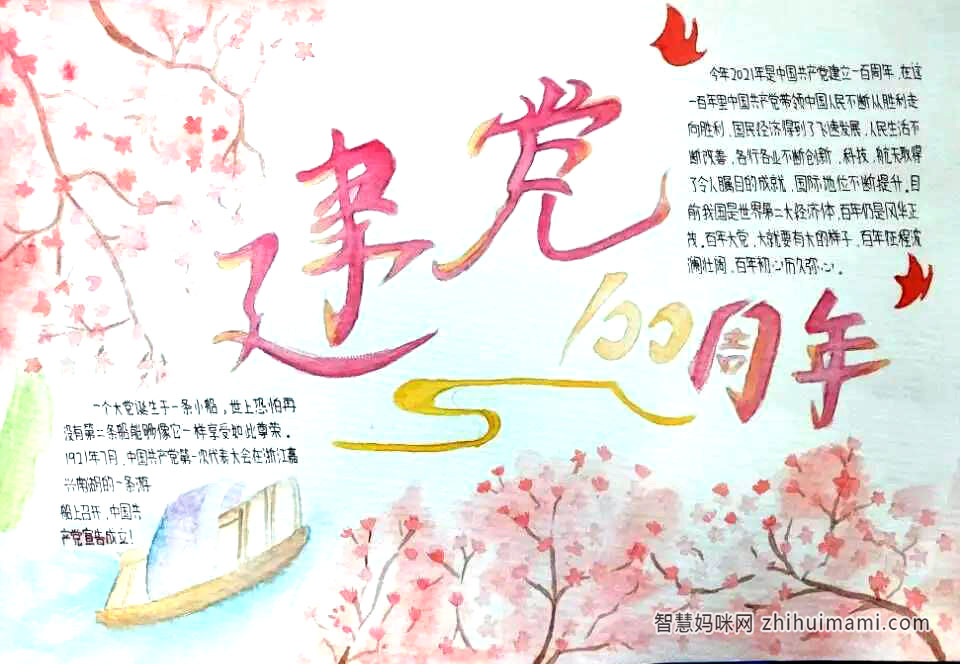 建党
100周年
今年2021年是中国共产党建立一百周年,在这
一百年里中国共产党带领中国人民不断从胜利走
向胜利,国民经济得到了飞速发展,人民生活不
断改善,各行各业不断创新,科技,航天取得
了令人瞩目的成就,国际地位不断提升。目
前我国是世界第二大经济体,百年仍是风华正
茂。百年大党,大就要有大的样子,百年征程波
澜壮阔,百年初心历久弥心。
一个大党诞生于一条小船,世上恐怕再
没有第二条船能够像它一样享受如此尊荣。
1921年7月,中国共产党第一次代表大会在浙江嘉
兴南湖的一条游
船上召开,中国共
产党宣告成立!
智慧妈咪网 zhihuimami.com